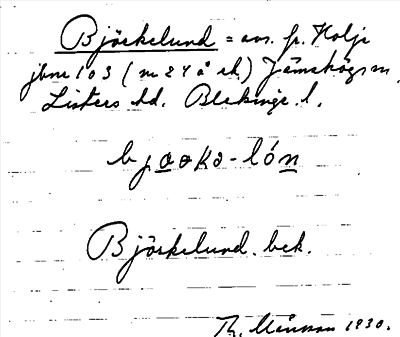 Björkelund = avs. fr. Holje
jbnr 103 (nr 24 å ek.) Jämshögs sn,
Listers hd. Blekinge l.
bjaəkə-lón
Björkelund. bek.
Th. Månsson 1930.